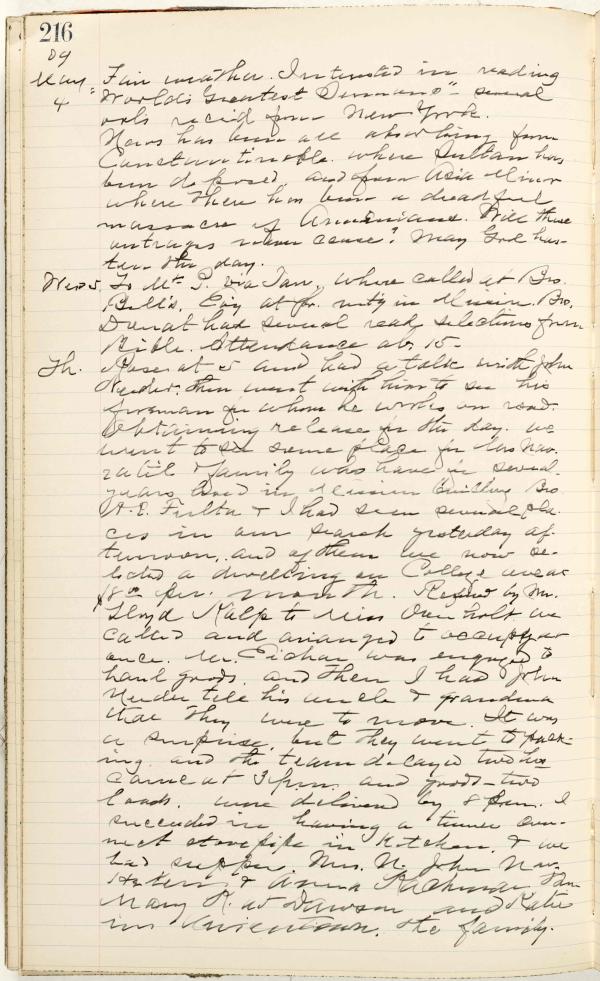 216
09
May Fair weather. Interested in reading
4 World's Greatest Sermons - several
vols rec'd from New York.
News has been all absorbing from
Constantinople where Sultan has
been deposed, and from Asia Minor
where there has been a dreadful
massacre of Armenians. Will these
outrages never cease? May God has-
ten the day.
Wed 5. To Mt. P. via Tarr, where called at Bro.
Bell's. Eng at pr. mtg in Mission. Bro.
had several read selections from
Bible. Attendance ab. 15.
Th. Rose at 5 and had a talk with John
then went with him to see his
foreman for whom he works on road.
Obtaining release for the day. we
went to see some place for Mrs
& family who have for several
years lived in Mission building Bro.
& I had seen several pla-
ces in our search yesterday af-
ternoon, and of them we now se-
lected a dwelling on College ave at
$8 00 per. month. Referred by Mr.
Lloyd Kalp to Miss Overholt we
called and arranged to occupy at
once. Mr. Eicher was engaged to
haul goods, and then I had John
tell his uncle & grandma
that they were to move. It was
a surprise, but they went to pack-
ing, and the team delayed two hrs
came at 3 p.m. and goods - two
loads, were delivered by 8 p.m. I
succeeded in having a tinner con-
nect stovepipe in kitchen, & we
had supper. Mrs. N. John
& Anna
Mary K. W. Dawson and Katie
in the family.